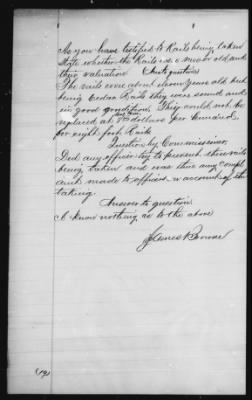 As you have testified to Rails being taken
State whether the Rails were new or old and
their valuation
The rails were about eleven years old but
being Cedar Rails they were sound and
in good condition. They could not be
replaced at dollars per hundred
for eight foot Rails
Question by Commissioner
Did any officer try to prevent these rails
being taken and was there any compl
aint made to officers on account of the
taking.
Answer to question
I know nothing as to the above
James Bowen
(12)